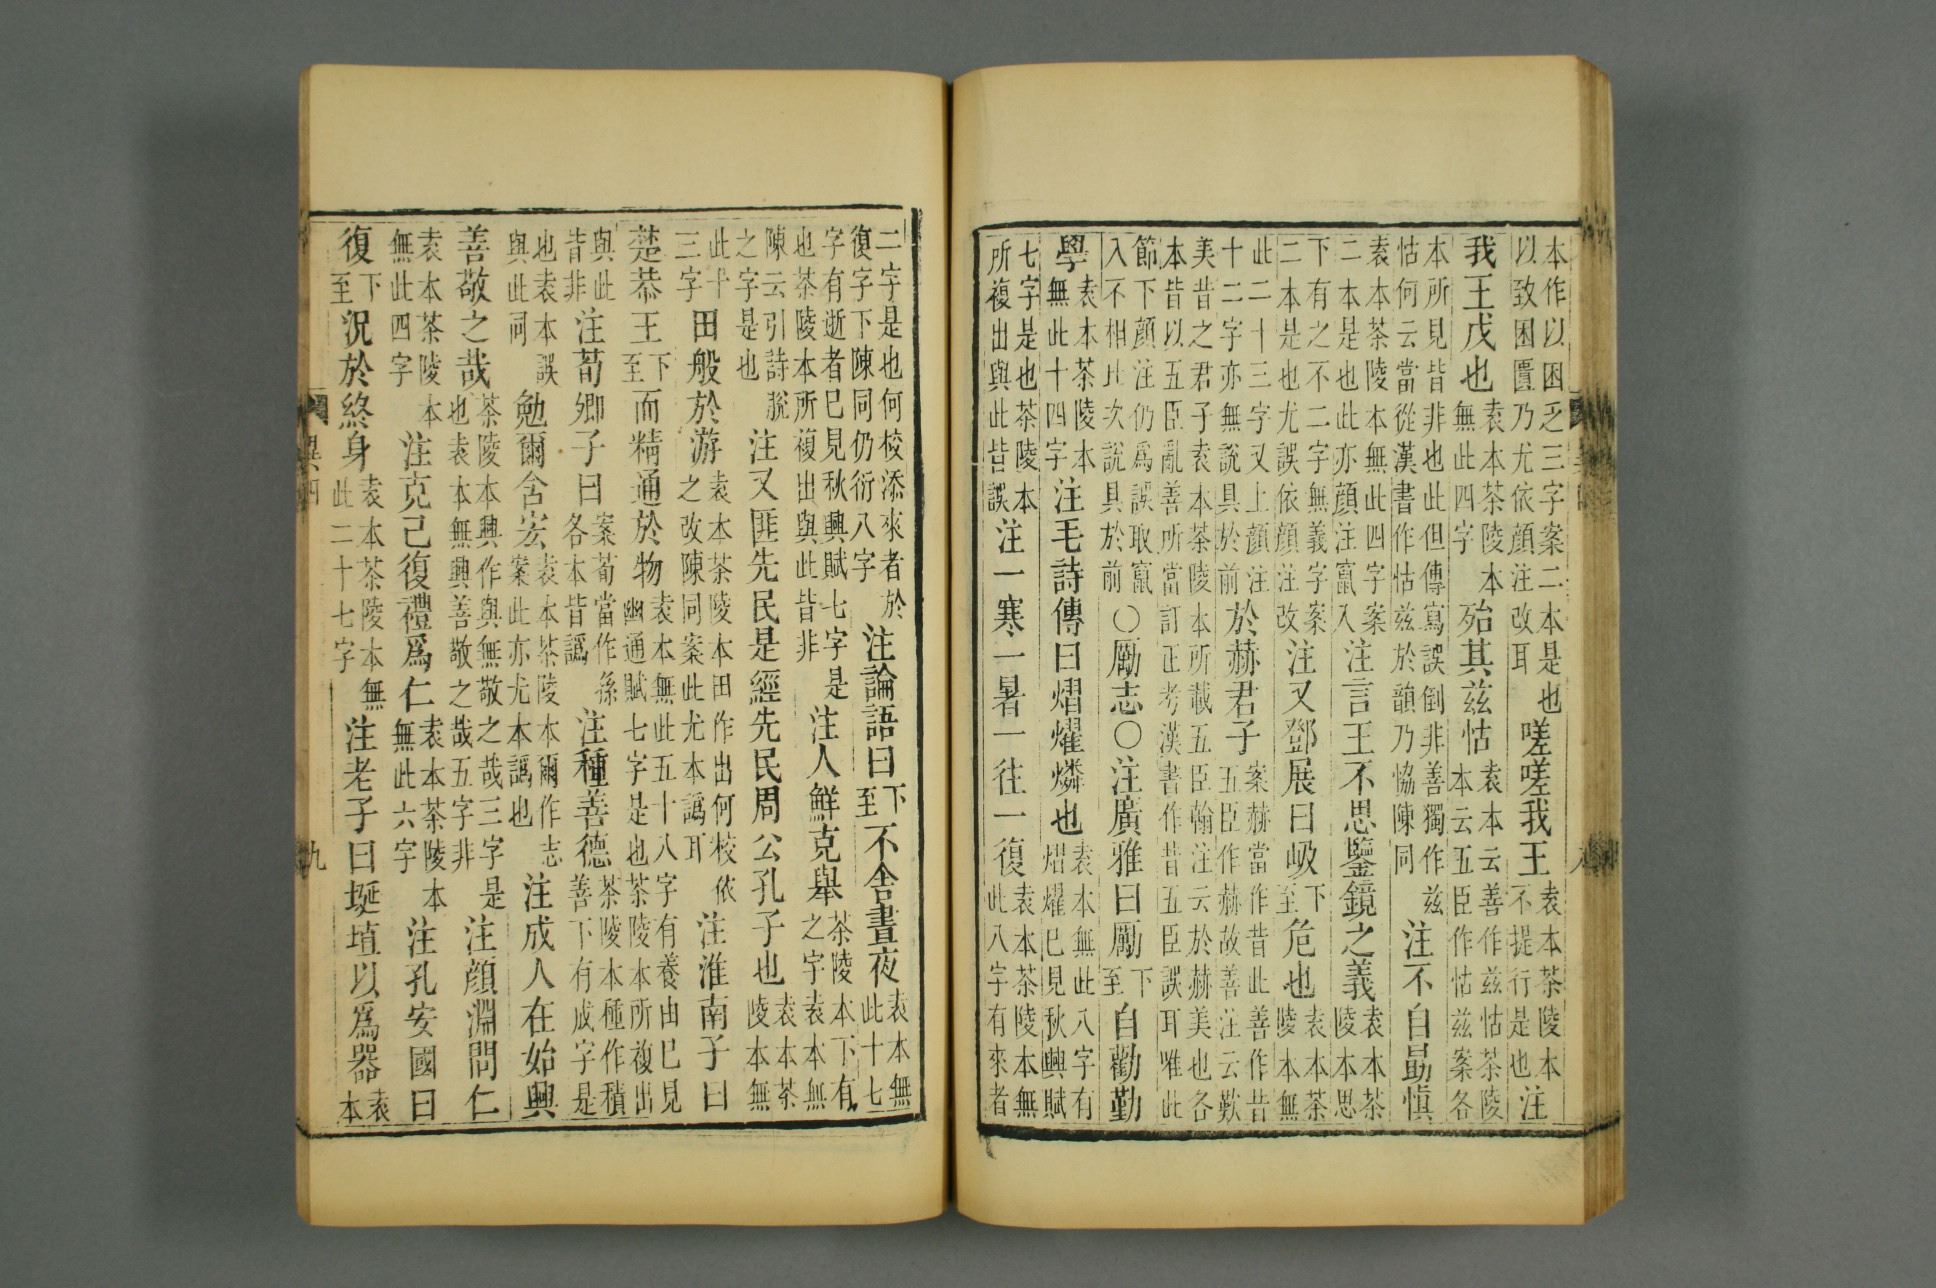 本作以困乏三字案二本是也以致困匱乃尤依顏注改耳嗟嗟我王袁本茶陵本不提行是也注
我王戊也袁本茶陵本無此四字殆其兹怙袁本云善作兹怙茶陵本云五臣作怙兹案各
本所見皆非也此但傳寫誤倒非善獨作兹怙何云當從漢書作怙兹於韻乃恊陳同注不自勗慎
袁本茶陵本無此四字案二本是也此亦顏注竄入注言王不思鑒鏡之義袁本茶陵本思
下有之不二字無義字案二本是也尤誤依顏注改注又鄧展曰岋下至危也袁本茶陵本無
此二十三字又上顏注十二字亦無說具於前於赫君子案赫當作昔此善作昔五臣作赫故善注云歎
美昔之君子袁本茶陵本所載五臣翰注云於赫美也各本昔以五臣亂善所當訂正考漢書作昔五臣誤耳唯此
節下顏注仍爲誤取竄入不相比次說具於前〇勵志〇注廣雅曰勵下至自勸勤
學袁本茶陵本無此十四字注毛詩傳曰熠燿燐也袁本無此八字有熠燿已見秋興賦
七字是也茶陵本所複出與此皆誤注一寒一暑一往一復袁本茶陵本無此八字有來者
二字是也何校添來者於復字下陳同仍衍八字注論語曰下至不舍晝夜袁本無此十七
字有逝者已見秋興賦七字是也茶陵本所複出與此皆非注人鮮克舉茶陵本下有之字袁本無
陳云引詩脫之字是也注又匪先民是經先民周公孔子也袁本茶陵本無
此十三字田般於游袁本茶陵本田作出何校依之改陳同案此尤本譌耳注淮南子曰
楚恭王下至而精通於物袁本無此五十八字有養由已見幽通賦七字是也茶陵本所複出
與此皆非注荀卿子曰案荀當作孫各本皆譌注種善德茶陵本種作積善下有成字是
也袁本誤與此同勉爾含宏袁本茶陵本爾作志案此亦尤本譌也注成人在始興
善敬之哉茶陵本興作與無敬之哉三字是也袁本無興善敬之哉五字非注顏淵問仁
袁本茶陵本無此四字注克己復禮爲仁袁本茶陵本無此六字注孔安國曰
復下至況於終身袁本茶陵本無此二十七字注老子曰埏埴以爲器袁本
異四
九